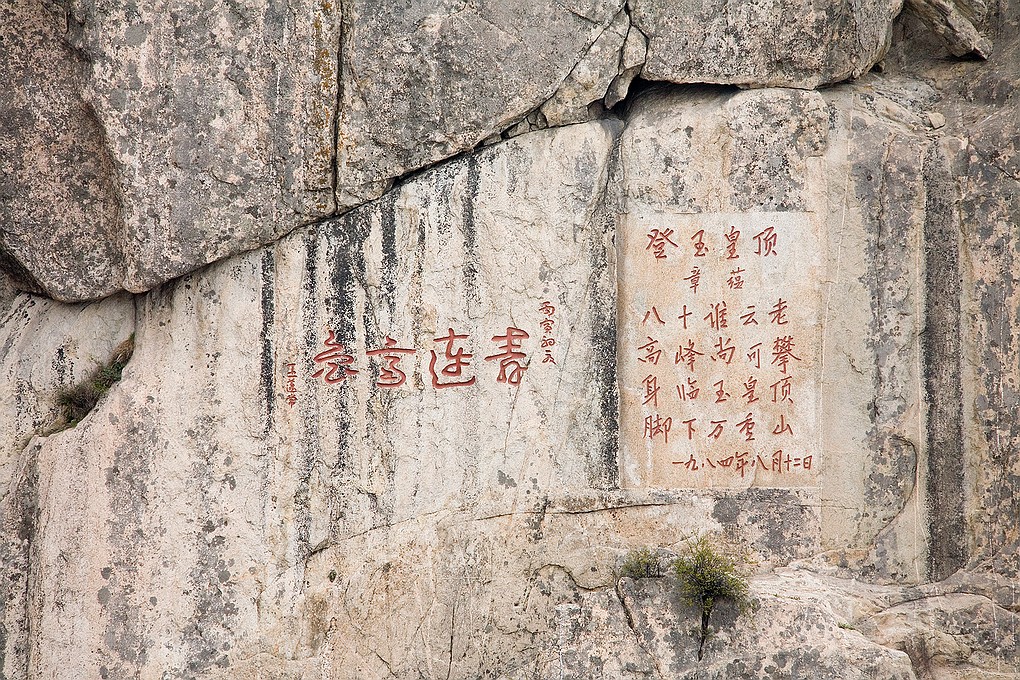 丙寅初夏
连高
登玉皇顶
章蕴
八十谁云老
高峰尚可攀
身临玉皇顶
脚下万重山
一九八四年八月十二日